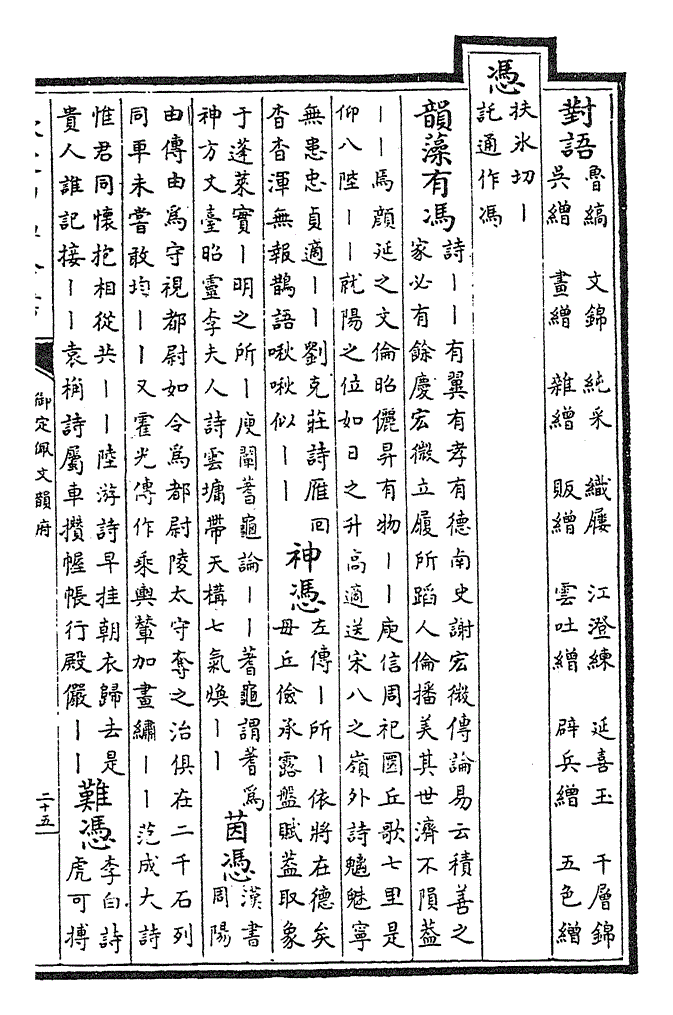 對語
魯縞 文錦 純采 織屨 江澄練 延喜玉 千層錦
吳繒 畫繒 雜繒 販繒 雲吐繒 辟兵繒 五色繒
憑
扶氷切丨
託通作馮
韻藻有馮
詩丨丨有翼有孝有德南史謝宏微傳論易云積善之
家必有餘慶宏微立履所蹈人倫播美其世濟不隕蓋
丨丨焉顔延之文倫昭儷昇有物丨丨庾信周祀圜丘歌七里是
仰八陛丨丨就陽之位如日之升高適送宋八之嶺外詩魑魅寧
無患忠貞適丨丨劉克莊詩雁回
杳杳渾無報鵲語啾啾似丨丨
神憑
左傳丨所丨依將在德矣
毋丘儉承露盤賦蓋取象
于蓬萊實丨明之所丨庾闡蓍龜論丨丨蓍龜謂蓍爲
神方文臺昭靈李夫人詩雲墉帶天構七氣煥丨丨
茵憑
漢書
周陽
由傳由爲守視都尉如令爲都尉陵太守奪之治俱在二千石列
同車未嘗敢均丨丨又霍光傳作乘輿輦加畫繡丨丨范成大詩
惟君同懷抱相從共丨丨陸游詩早挂朝衣歸去是
貴人誰記接丨丨袁桷詩屬車攢幄帳行殿儼丨丨
難憑
李白詩
虎可摶
御定佩文韻府
二十五